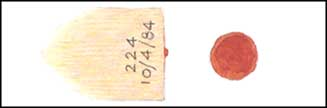 224
10/4/84